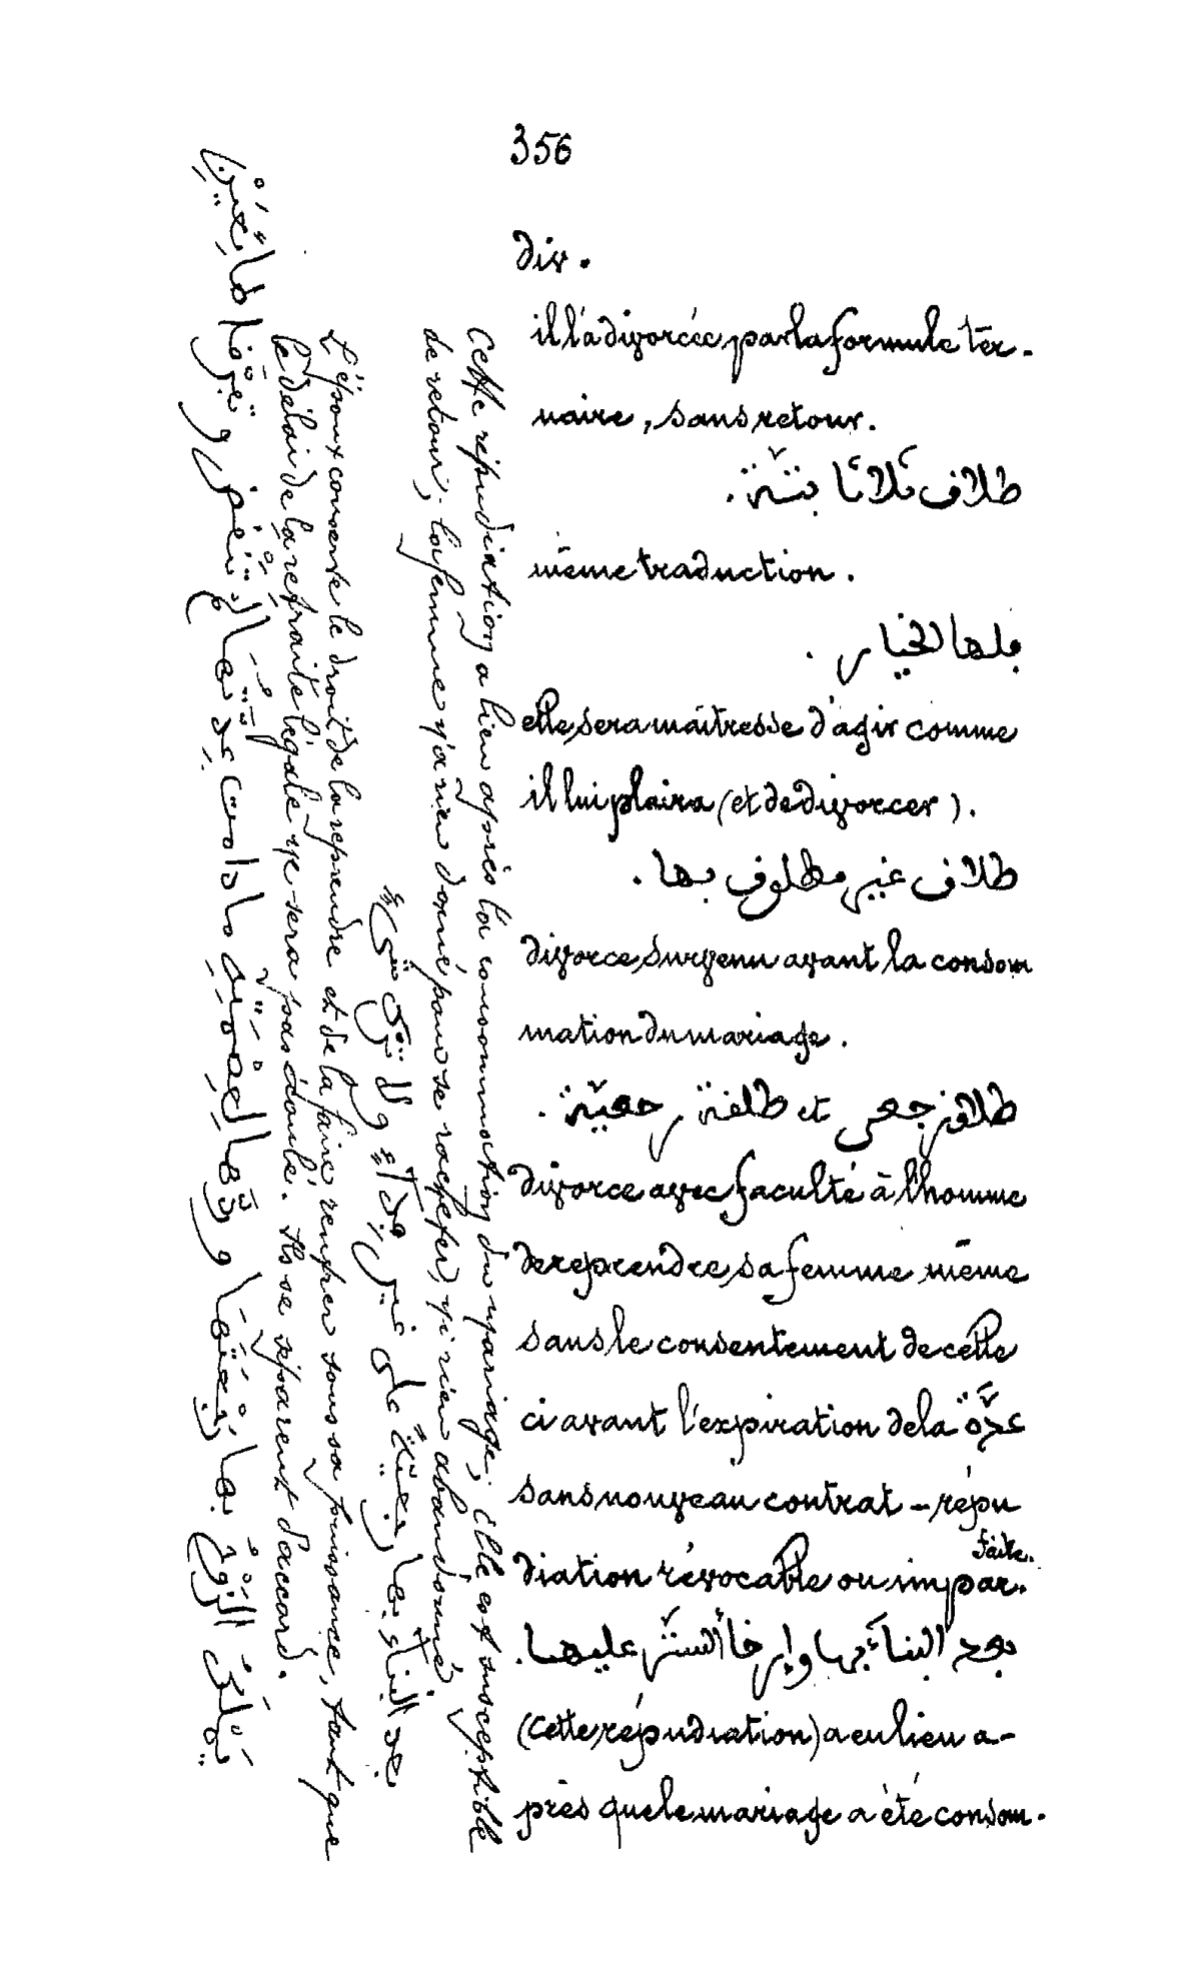 356
div.
il l'a divorcée par la formule ter-
naire, sans retour.
طلاق ثلاثا بتّة.
même traduction.
فلها الخيار.
elle sera maîtresse d'agir comme
il lui plaira (et de divorcer).
طلاق غير مطلوق بها.
divorce survenu avant la consom
mation du mariage.
طلاق رجعى et طلقة رجعيّة.
divorce avec faculté à l'homme
de reprendre sa femme, même
sans le consentement de celle
ci avant l'expiration de la عدّة
sans nouveau contrat - répu
diation révocable ou impar-faite.
بعد البناء بها وإرخا الستر عليها.
(cette répudiation) a eu lieu a-
près que le mariage a été consom-
Cette répudiation a lieu après la consommation du mariage; elle est susceptible
de retour; la femme n'a rien donné pour se racheter, ni rien abandonné
بعد البناء بها رجعيّة على غير فداء ولا ترك شىء
L'époux conserve le droit de la reprendre et de la faire rentrer sous sa puissance, tant que
le délai de la retraite légale ne sera pas écoulé. Ils se séparent d'accord.
يملك الزوج بها رجعتها وردّها الى عصمته ما دامت عدتها لم تنقض وتفرقا طائعين